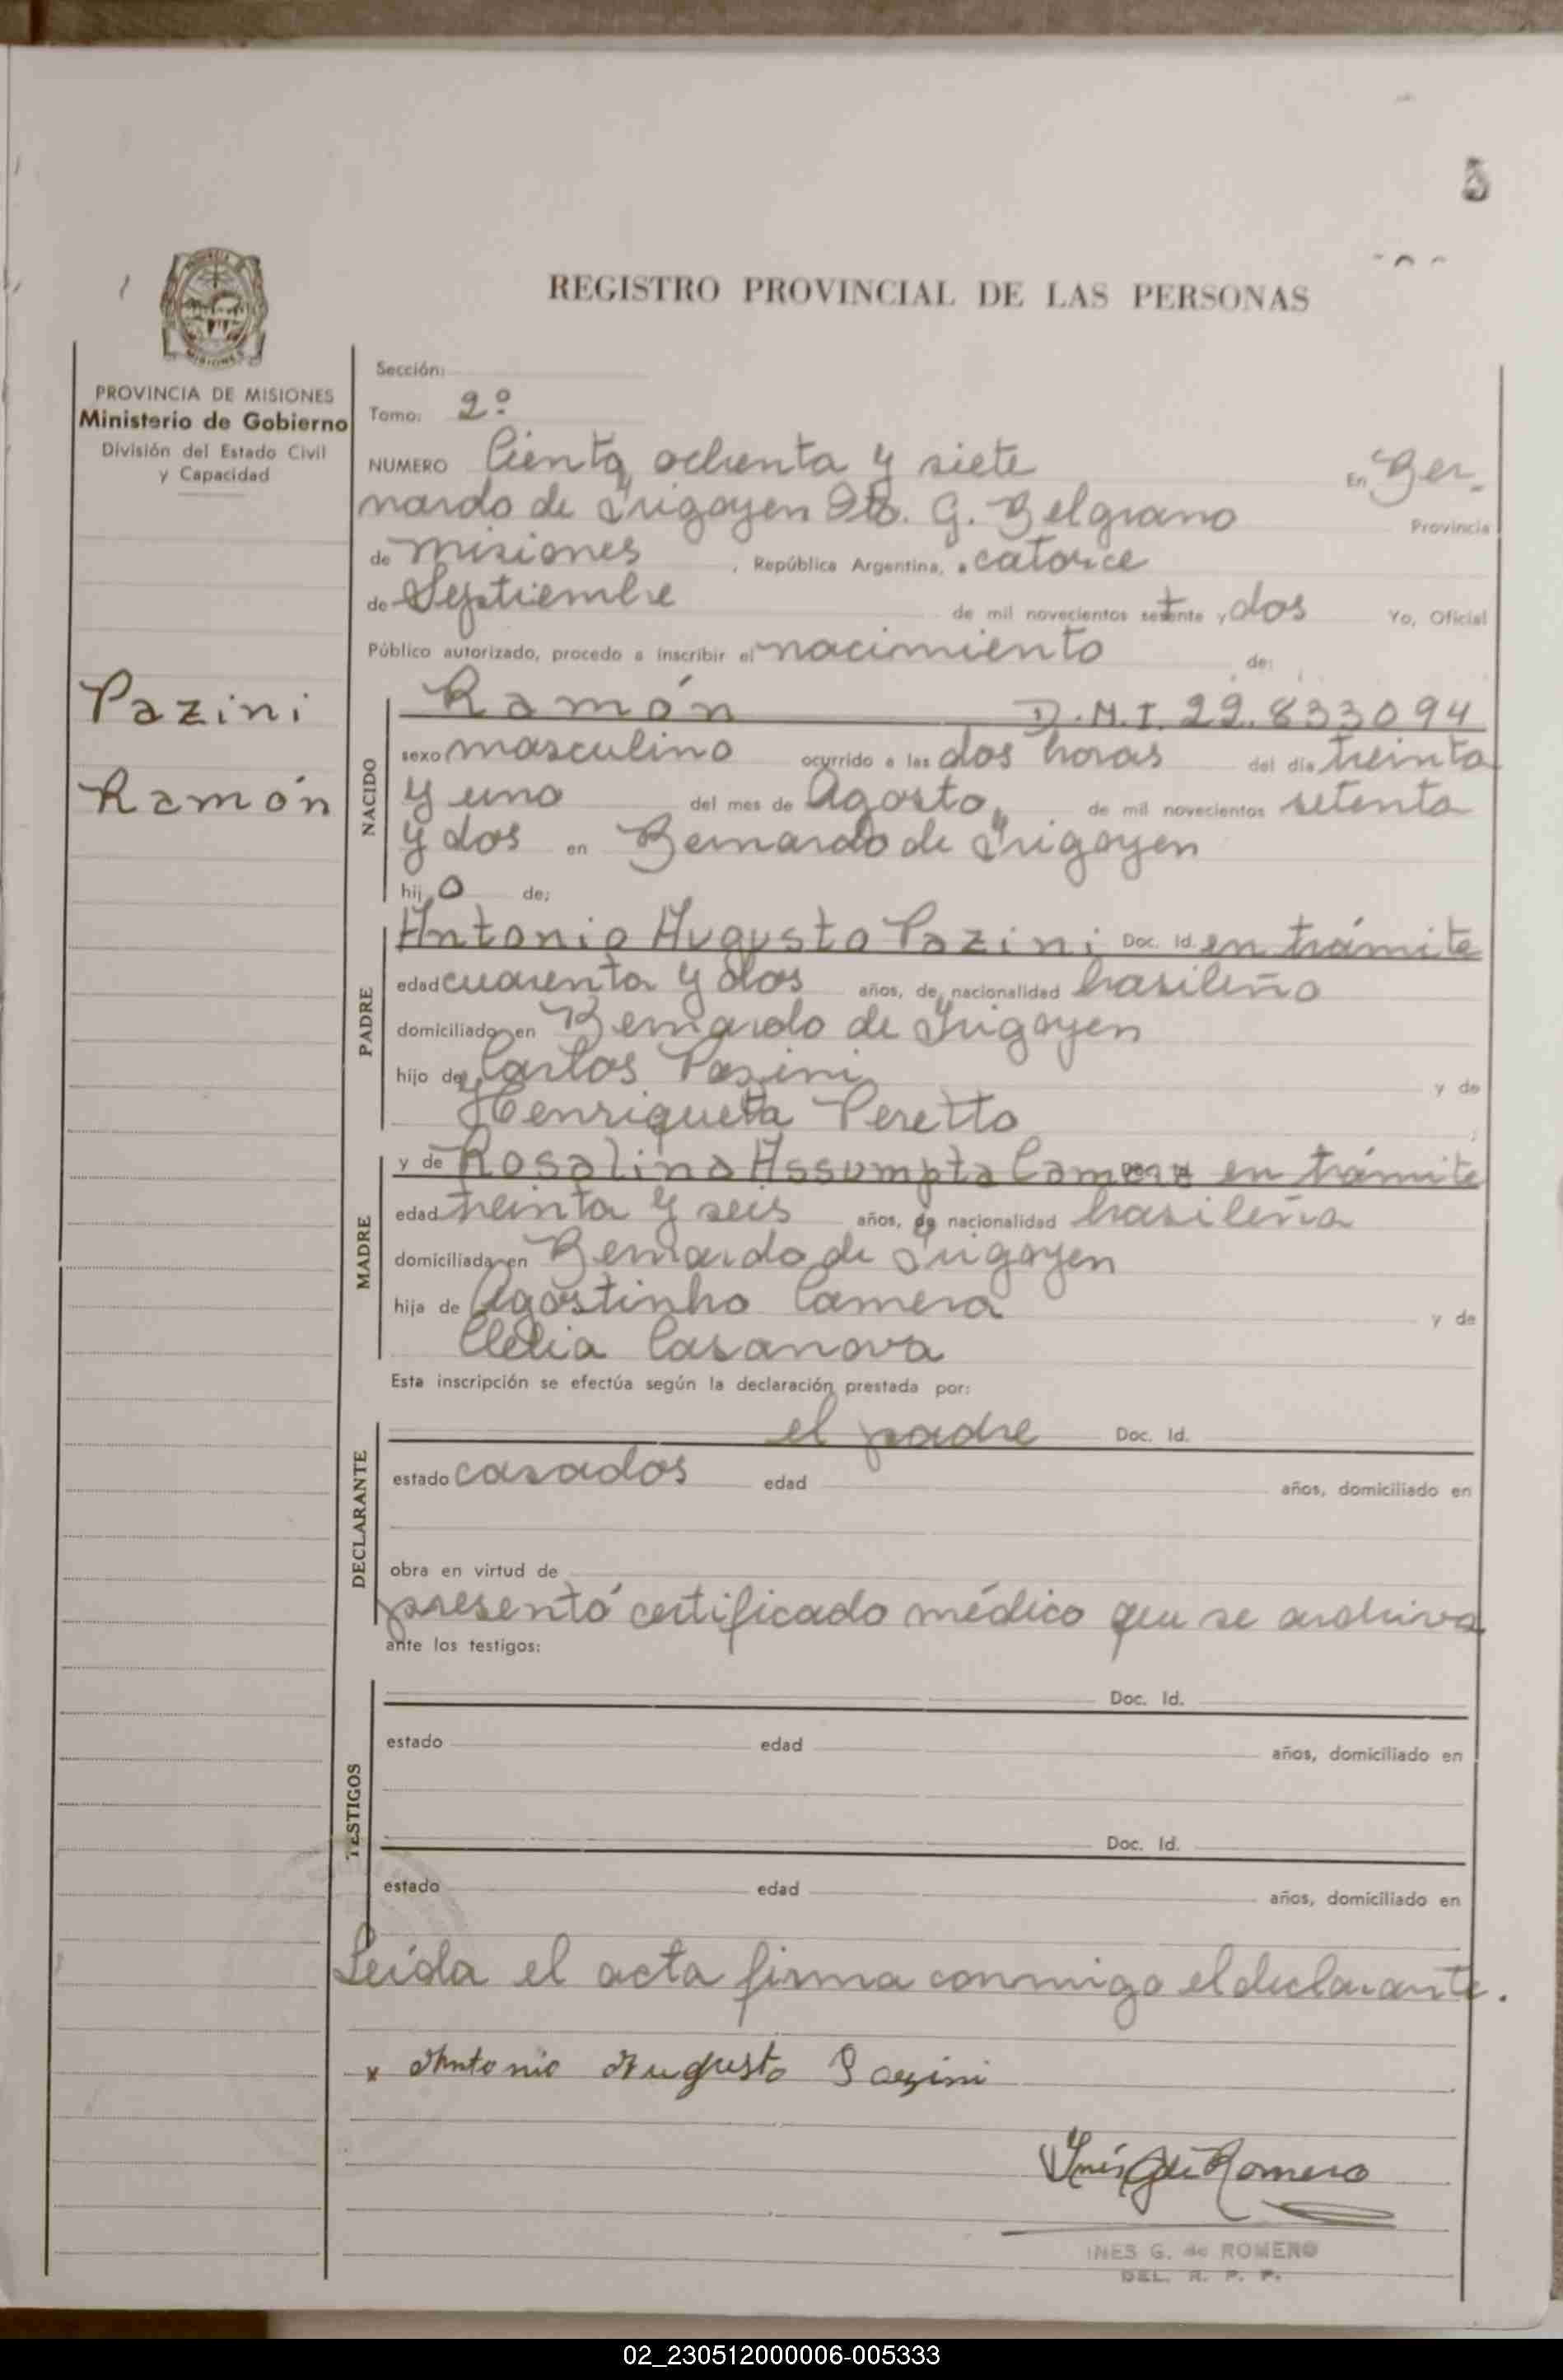 5
REGISTRO PROVINCIAL DE LAS PERSONAS
PROVINCIA DE MISIONES
MISIONES
PROVINCIA DE MISIONES
Ministerio de Gobierno
División del Estado Civil
y Capacidad
Pazini
Ramón
Sección:
Tomo: 2º
NUMERO Ciento ochenta y siete En Ber-
nardo de Irigoyen Dto. G. Belgrano Provincia
de Misiones, República Argentina, a catorce
de Septiembre de mil novecientos setenta y dos Yo, Oficial
Público autorizado, procedo a inscribir el nacimiento de:
NACIDO
Ramón D.N.I. 22.833094
sexo masculino ocurrido a las dos horas del día treinta
y uno del mes de Agosto de mil novecientos setenta
y dos en Bernardo de Irigoyen
hijo de:
PADRE
Antonio Augusto Pazini Doc. Id. en trámite
edad cuarenta y dos años, de nacionalidad brasileño
domiciliado en Bernardo de Irigoyen
hijo de Carlos Pazini y de
Henriqueta Peretto
MADRE
y de Rosalina Assumpta Camera en trámite
edad treinta y seis años, de nacionalidad brasileña
domiciliada en Bernardo de Irigoyen
hija de Agostinho Camera y de
Clelia Casanova
Esta inscripción se efectúa según la declaración prestada por:
DECLARANTE
el padre Doc. Id.
estado casados edad años, domiciliado en
obra en virtud de
presentó certificado médico que se archiva
ante los testigos:
TESTIGOS
Doc. Id.
estado edad años, domiciliado en
Doc. Id.
estado edad años, domiciliado en
Leída el acta firma conmigo el declarante.
x Antonio Augusto Pazini
Inés G de Romero
INES G. de ROMERO
DEL. R. P. P.
02_230512000006-005333